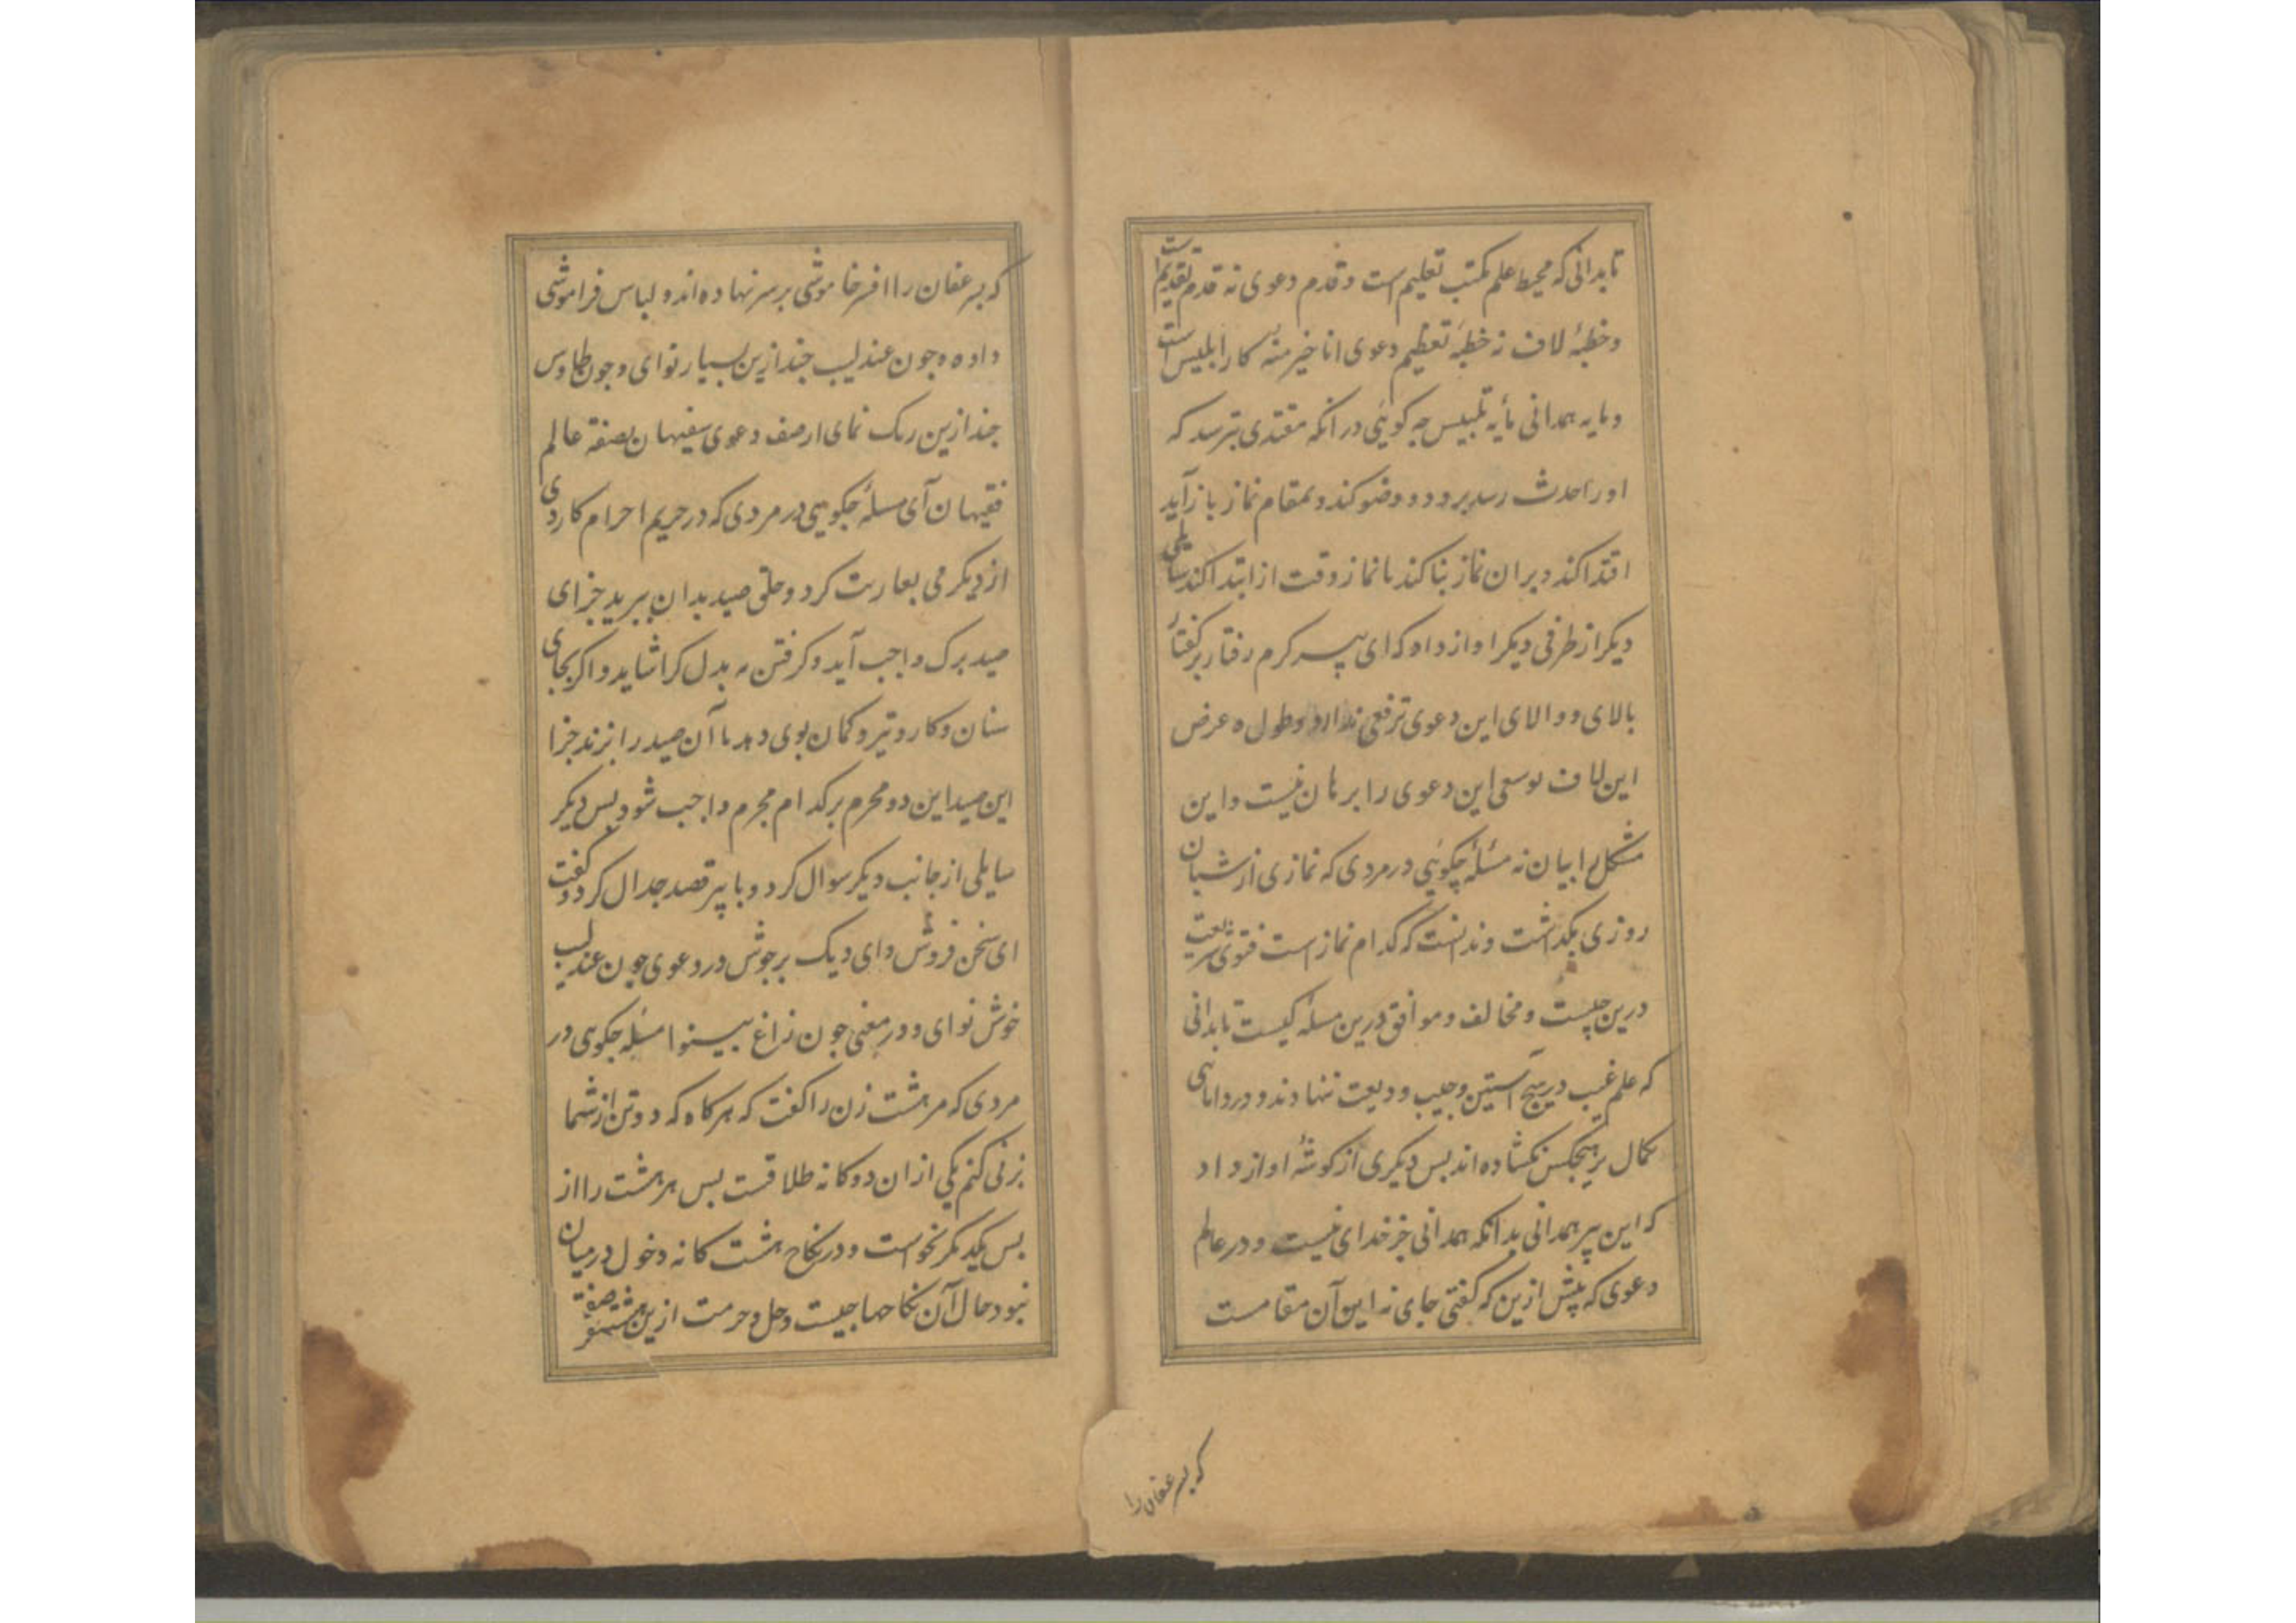 تا بدانی که محیط علم مکتب تعلیم است و قدم دعوی نه قدم تقدیم است
و خطبهٔ لاف نه خطبهٔ تعظیم دعوی انا خیر منه کار ابلیس است
و مایه همدانی مایهٔ تلبیس چه کوئی در آنکه مقتدی بترسد که
او را حدث رسد برود و وضو کند و بمقام نماز باز آید
اقتدا کند و بر ان نماز بنا کند یا نماز وقت از ابتدا کند سایلی
دیکر از طرفی دیکر اواز داد که ای پیر کرم رفتار بر کفتار
بالای و والای این دعوی ترفعی ندارد و طول و عرض
این لاف توسعی این دعوی را برهان نیست و این
مشکل را بیان نه مسئلهٔ چکوئی در مردی که نمازی از شبان
روزی بکذاشت و ندانست که کدام نماز است فتوی شریعت
درین چیست و مخالف و موافق درین مسله کیست تا بدانی
که علم غیب در هیچ آستین و جیب ودیعت ننهادند و در دانایی
کمال بر هیچکس نکشاده اند بس دیکری از کوشهٔ اواز داد
که این پیر همدانی بدانکه همدانی جز خدای نیست و در عالم
دعوی که پیش ازین که کفتی جای نه این آن مقامست
که بسر عفان را
که بسر عفان را افسر خاموشی بر سر نهاده اند و لباس فراموشی
داده و جون عندلیب جند ازین بسیار نوای و جون طاوس
جند ازین رنک نمای از صف دعوی سفیهان بصفهٔ عالم
فقیهان آی مسلهٔ جکویی در مردی که در حریم احرام کاردی
از دیکر می بعاریت کرد و حلق صید بدان ببرید جزای
صید برک واجب آید و کرفتن بدل کرا شاید و اکر بجای
سنان و کارد و تیر و کمان بوی دهد تا آن صید را بزند جزا
این صید این دو محرم بر کدام مجرم واجب شود بس دیکر
سایلی از جانب دیکر سوال کرد و با پیر قصد جدال کرد و کفت
ای سخن فروش و ای دیک بر جوش در دعوی چون عندلیب
خوش نوای و در معنی جون زاغ بینوا مسئله جکویی در
مردی که مر هشت زن را کفت که هر کاه که دو تن از شما
بزنی کنم یکی از ان دوکانه طلاقست بس هر هشت را از
بس یکدیکر بخواست و در نکاح هشت کانه دخول در میان
نبود حال آن نکاحها جیست و حل و حرمت ازین هشت